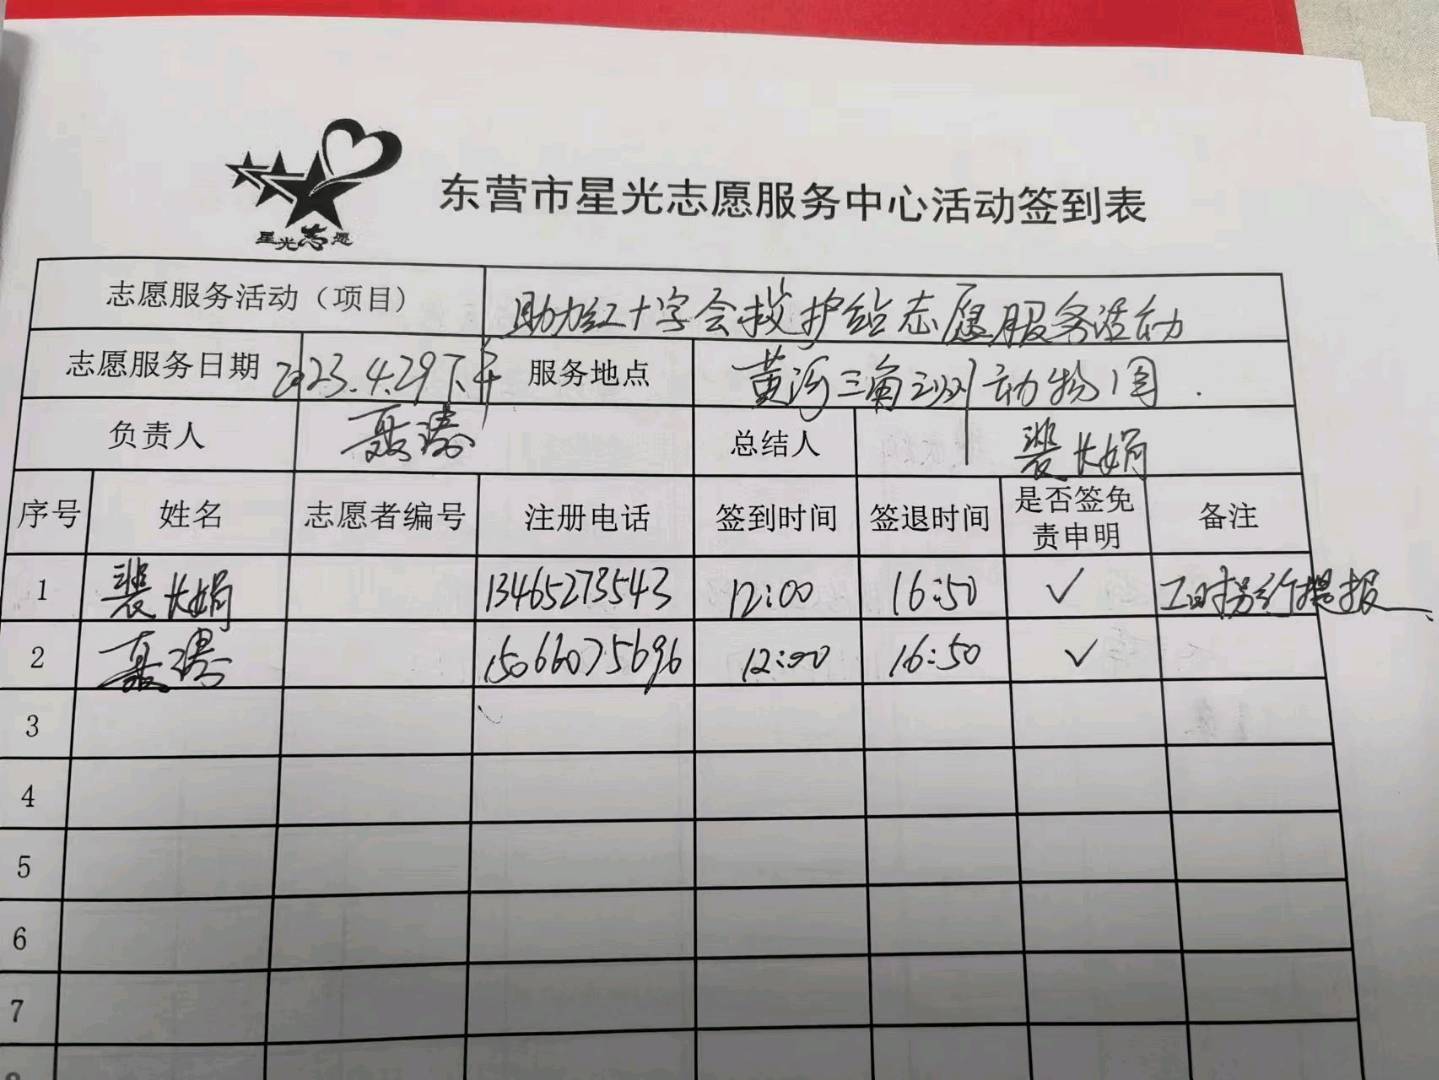 星光志愿
东营市星光志愿服务中心活动签到表
志愿服务活动（项目） 助力红十字会救护站志愿服务活动
志愿服务日期 2023.4.29下午 服务地点 黄河三角洲动物园.
负责人 聂涛 总结人 裴大娟
序号 姓名 志愿者编号 注册电话 签到时间 签退时间 是否签免责申明 备注
1 裴大娟 13465273543 12:00 16:50 ✓ 工时另行提报
2 聂涛 15066075696 12:00 16:50 ✓
3
4
5
6
7